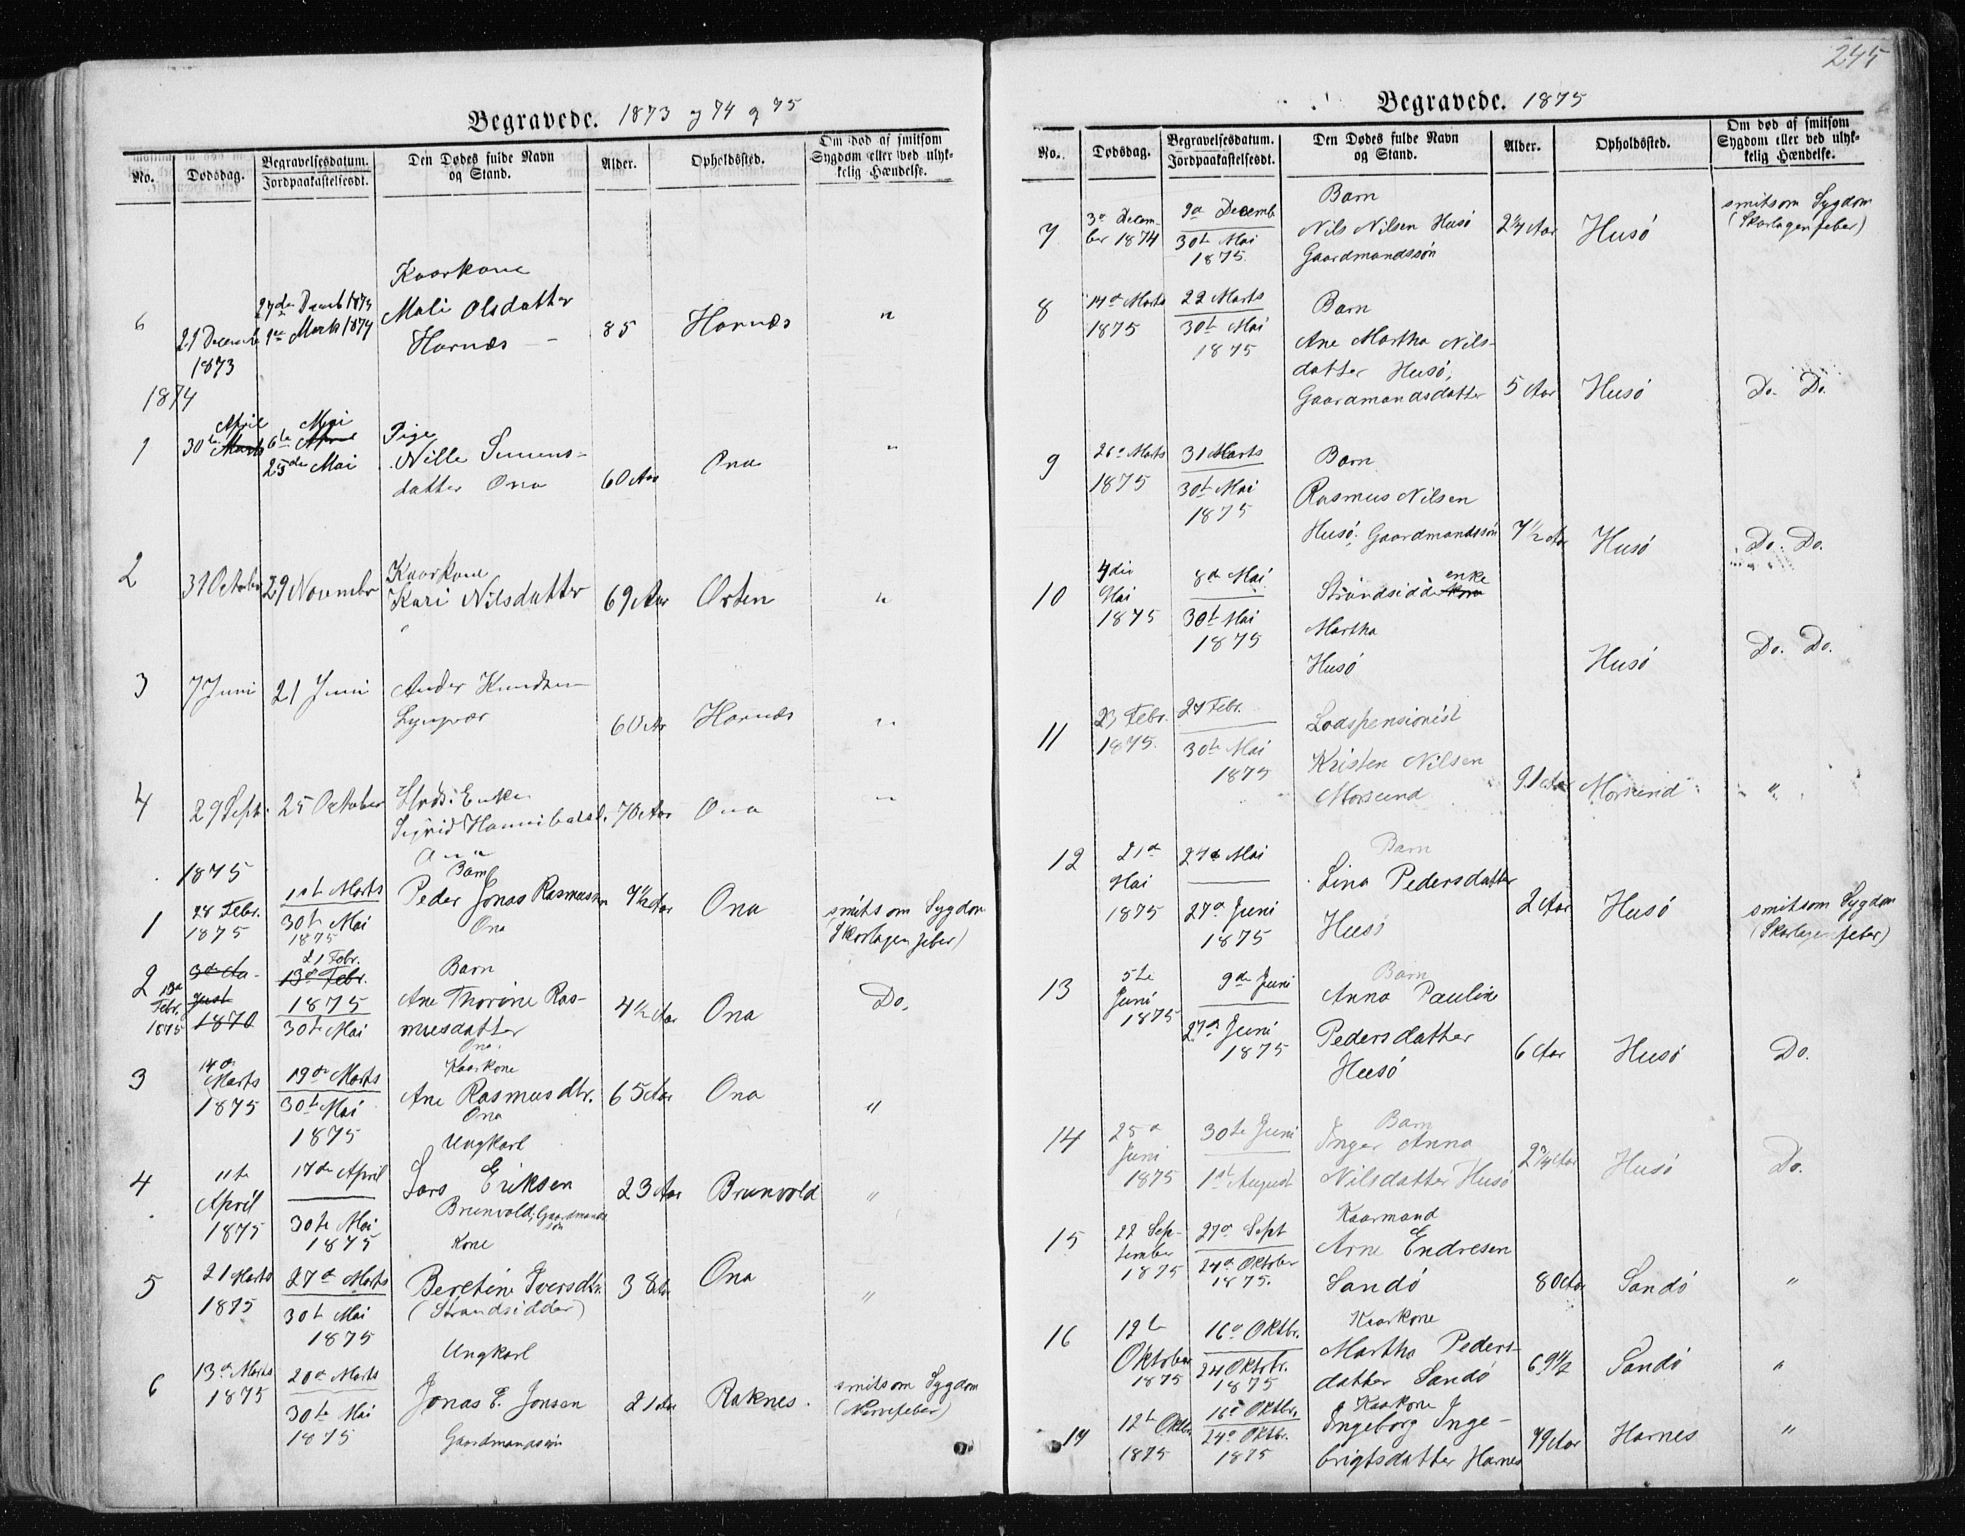 245
Begravede. 1873 og 74 og 75
No.
Dødsdag.
Begravelsesdatum.
Jordpaakastelsesdt.
Den Dødes fulde Navn
og Stand.
Alder.
Opholdssted.
Om død af smitsom
Sygdom eller ved ulyk-
kelig Hændelse.
6
21 December
1873
27de Decmb 1873
1ste Marts 1874
Kaarkone
Mali Olsdatter
Harnæs
85
Harnæs
"
1874
1
April
30te Marts
Mai
6te April
25de Mai
Pige
Nille Simens-
datter Ona
60 Aar
Ona
"
2
31 October
29 November
Kaarkone
Kari Nilsdatter
69 Aar
Orten
"
3
7 Juni
21 Juni
Ander Knudsen
Lyngvær
60 Ar
Harnæs
"
4
29 Sept.
25 October
Strds: Enke
Sigrid Hannibalsd.
Ona
70 Aar
Ona
"
1875
1
28 Febr.
1875
1st Marts
30te Mai
1875
Barn
Peder Jonas Rasmussen
Ona
7½ Aar
Ona
smitsom Sygdom
(Skarlagenfeber)
2
13de
Febr.
1875
3de Au-
gust
1870
21 Febr.
13de Febr.
1875
30te Mai
Barn
Ane Thorine Ras-
musdatter
Ona.
4½ Aar
Ona
Do.
3
14de
Marts
1875
19de Marts
30te Mai
1875
Kaarkone
Ane Rasmusdtr.
Ona
65 Aar
Ona
"
4
11te
April
1875
17de April
30te Mai
1875
Ungkarl
Lars Eriksen
Brunvold, Gaardmands
søn
23 Aar
Brunvold
"
5
21 Marts
1875
27de Marts
30te Mai
1875
Kone
Beretine Iversdtr.
(Strandsidder)
38 Aar
Ona
"
6
13de Marts
1875
20de Marts
30te Mai
1875
Ungkarl
Jonas E. Jonsen
Gaardmandssøn
21 Aar
Raknes.
smitsom Sygdom
(Nervefeber)
Begravede. 1875
No.
Dødsdag.
Begravelsesdatum.
Jordpaakastelsesdt.
Den Dødes fulde Navn
og Stand.
Alder.
Opholdssted.
Om død af smitsom
Sygdom eller ved ulyk-
kelig Hændelse.
7
3de Decem-
ber 1874
9de Decemb
30te Mai
1875
Barn
Nils Nilsen Husø
Gaardmandssøn
Aar
Husø
smitsom Sygdom
(Skarlagenfeber)
8
14de Marts
1875
22 Marts
30te Mai
1875
Barn
Ane Martha Nils-
datter Husø,
Gaardmandsdatter
5 Aar
Husø
Do. Do.
9
26de Marts
1875
31 Marts
30te Mai
1875
Barn
Rasmus Nilsen
Husø, Gaardmandssøn
7½ Aar
Husø
Do. Do.
10
4die
Mai
1875
8de Mai
30te Mai
1875
enke
Strandsidderkone
Martha
Husø
Husø
Do. Do.
11
23 Febr.
1875.
27 Febr.
30te Mai
1875
Lodspensionist
Kristen Nilsen
Morsund
91 Aar
Morsund
"
12
21de
Mai
1875
27de Mai
27de Juni
1875
Barn
Lina Pedersdatter
Husø
2 Aar
Husø
smitsom Sygdom
(Skarlagenfeber)
13
5te
Juni
1875
9de Juni
27de Juni
1875
Barn
Anna Pauline
Pedersdatter
Husø
6 Aar
Husø
Do.
14
25de
Juni
1875
30te Juni
1st August
Barn
Inger Anna
Nilsdatter Husø
2¾ Aar
Husø
Do.
15
22 Sep-
tember
1875
27de Sept
24de Oktober
1875.
Kaarmand
Arne Endresen
Sandø
80 Aar
Sandø
"
16
12te
Oktober
1875
16de Oktbr.
24 Oktobr.
1875
Kaarkone
Martha Peders-
datter Sandø
69½
Sandø
"
17
12te Oktbr
1875
16de Oktbr.
24de Oktbr.
1875
Kaarkone
Ingeborg Inge-
brigtsdatter Harnes
79 Aar
Harnes
"